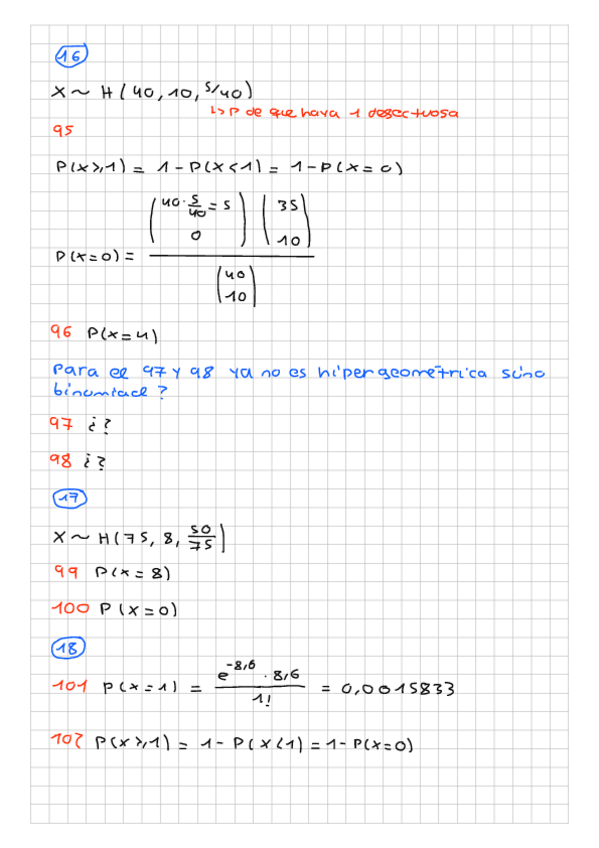 16
X ~ H(40, 10, 5/40)
↳ P de que haya 1 desectuosa
95
P(x≥1) = 1 - P(x<1) = 1 - P(x=0)
P(x=0) = \frac{\binom{40·\frac{5}{40}=5}{0} \binom{35}{10}}{\binom{40}{10}}
96 P(x=4)
Para el 97 y 98 ya no es hipergeométrica sino
binomial?
97 ¿?
98 ¿?
17
X ~ H(75, 8, \frac{50}{75})
99 P(x=8)
100 P(x=0)
18
101 P(x=1) = \frac{e^{-8,6} · 8,6}{1!} = 0,0015833
102 P(x≥1) = 1 - P(x<1) = 1 - P(x=0)